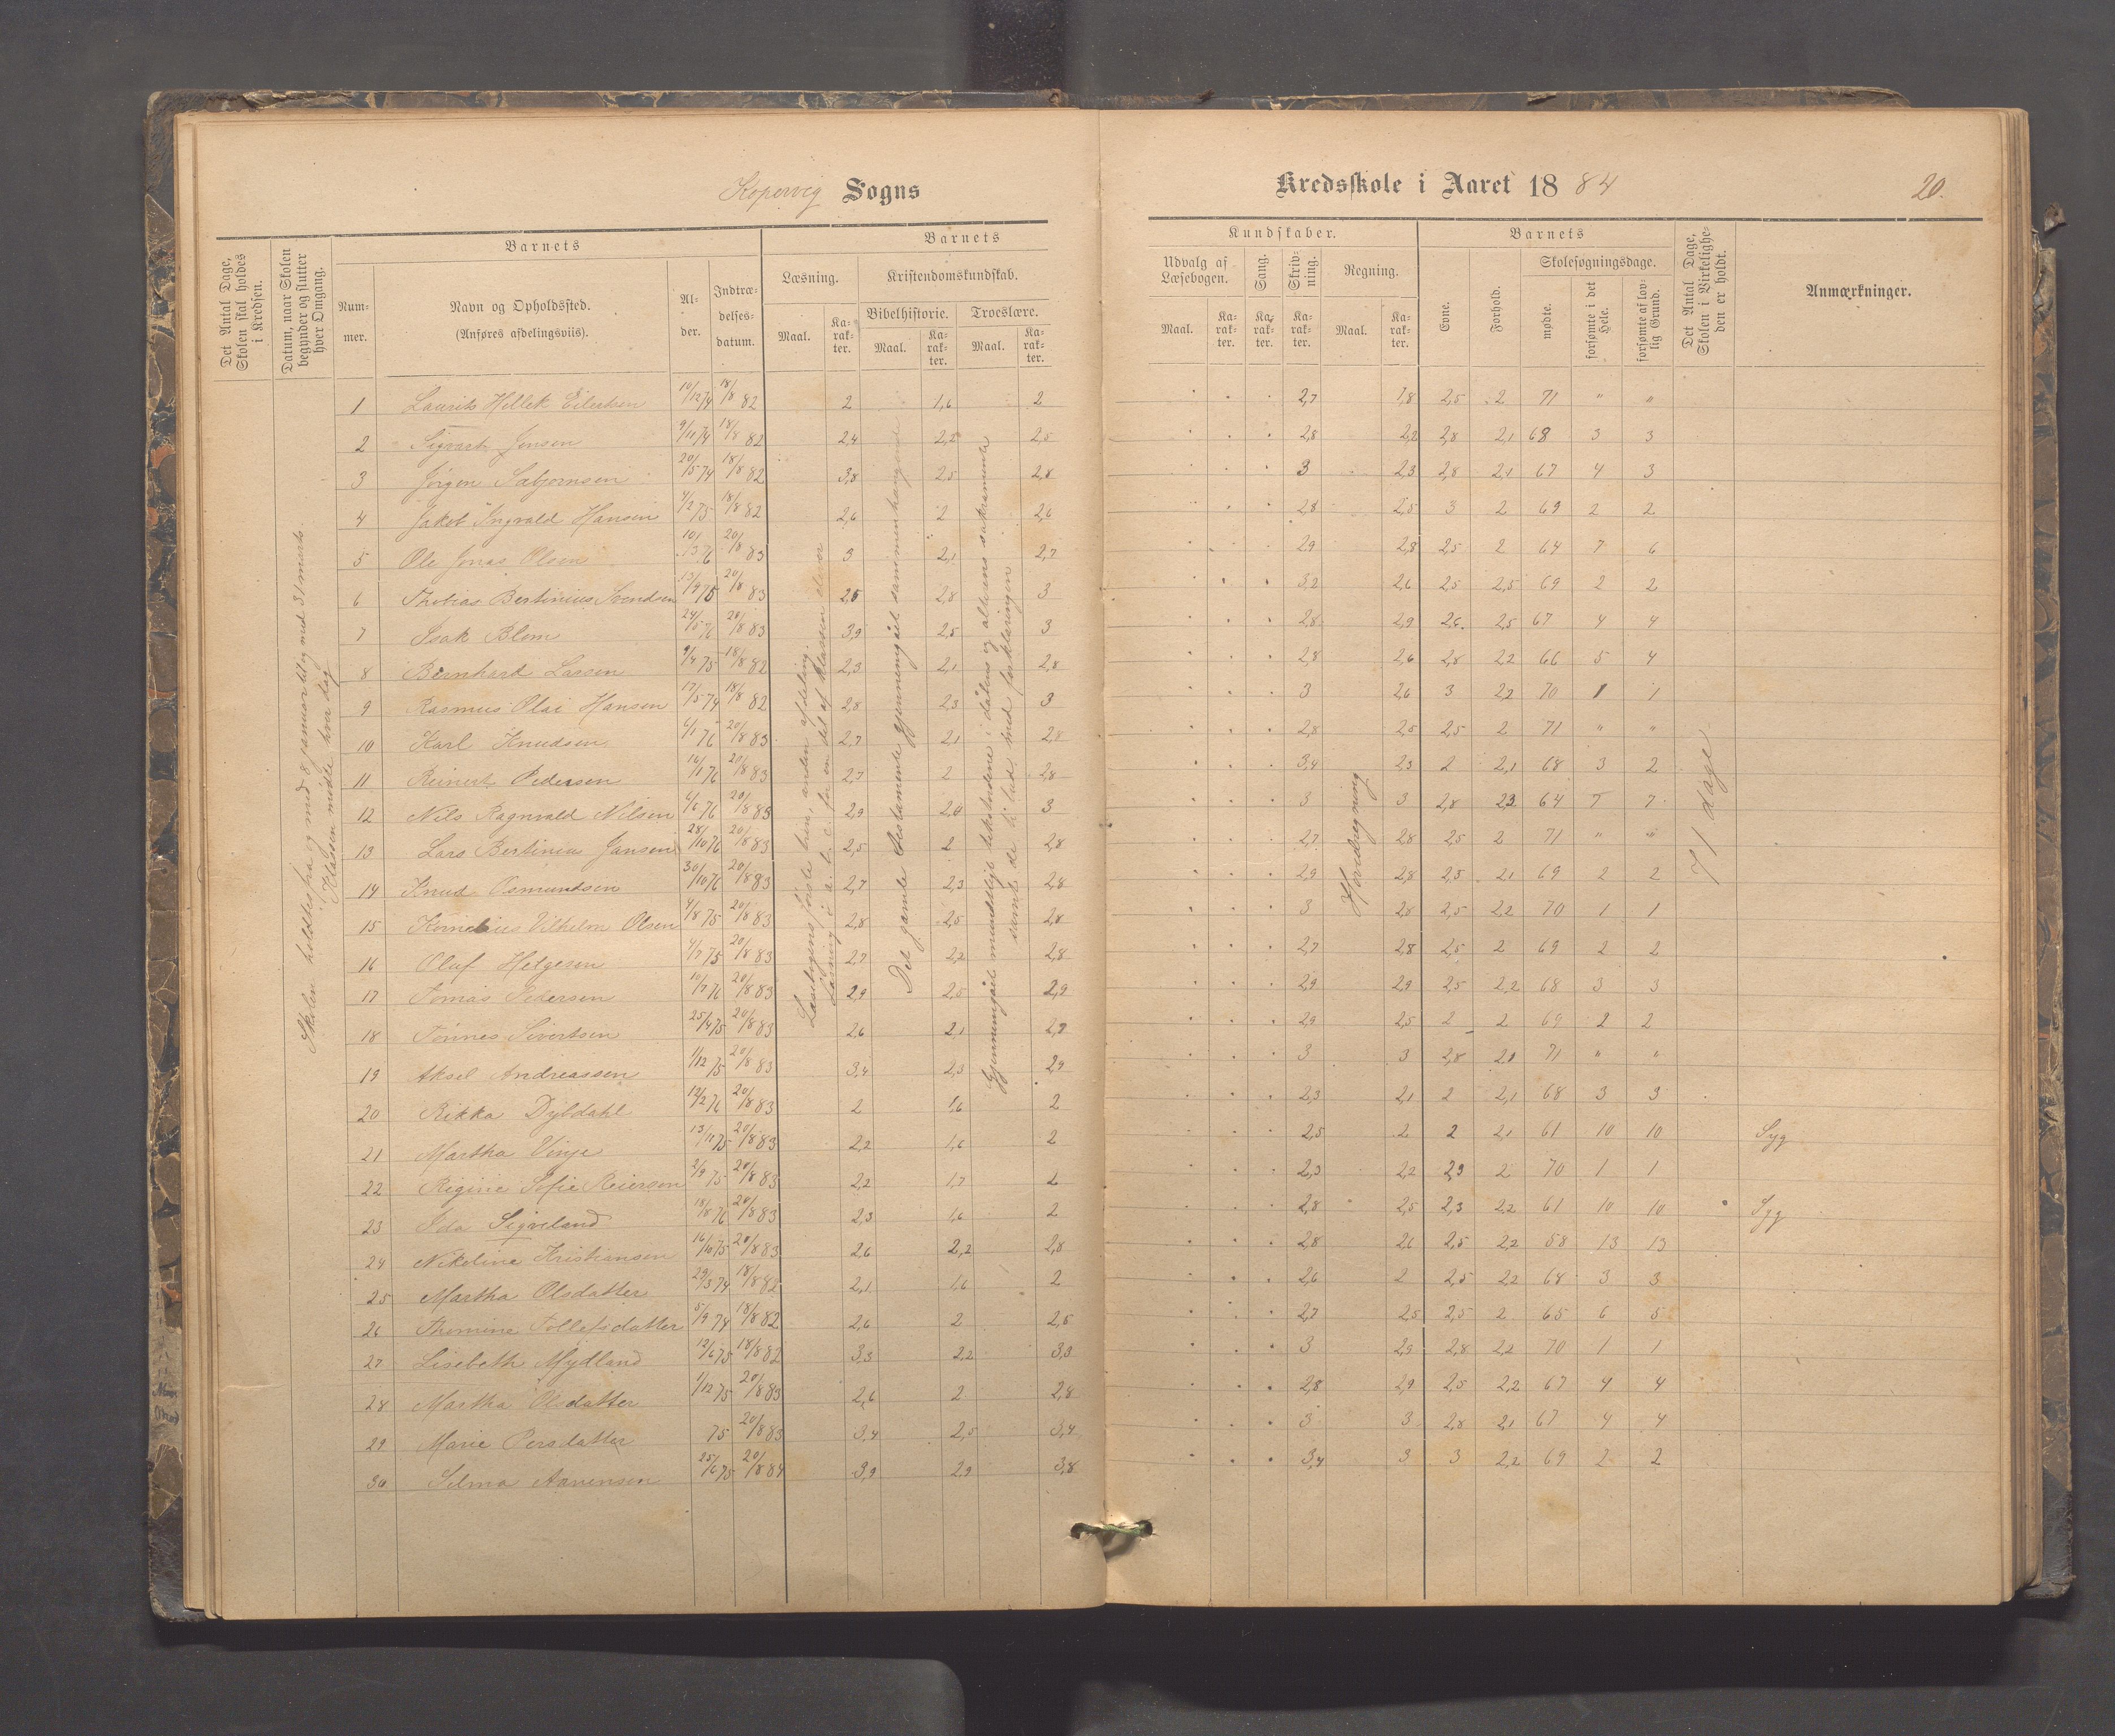 Kopervig Sogns
Kredsskole i Aaret 1884
20.
Det Antal Dage, Skolen skal holdes i Kredsen.
Datum, naar Skolen begynder og slutter hver Omgang.
Barnets
Nummer.
Navn og Opholdssted.
(Anføres afdelingsviis).
Alder.
Indtrædelsesdatum.
Barnets
Læsning.
Kristendomskundskab.
Bibelhistorie.
Troeslære.
Maal.
Karakter.
Maal.
Karakter.
Maal.
Karakter.
Kundskaber.
Udvalg af Læsebogen.
Sang.
Skrivning.
Regning.
Maal.
Karakter.
Karakter.
Karakter.
Maal.
Karakter.
Barnets
Evne.
Forhold.
Skolesøgningsdage.
mødte.
forsømte i det Hele.
forsømte af lovlig Grund.
Det Antal Dage, Skolen i Virkeligheden er holdt.
Anmærkninger.
Skolen holdtes fra og med 8 januar til og med 31 marts.
Klassen mødte hver dag
Læsebogens første trin, anden afdeling.
Læsning i a. b. c. for en del af klassens elever
Det gamle testamente gjennemgået sammenhængende
Gjennemgået mundtligt tekstordene i dåbens og alterens sakramente
samt de ti bud med forklaringen
Hovedregning
71 dage
1 Laurits Hellek Eilertsen 10/12 74 18/8 82 2 1,6 2 2,7 1,8 2,5 2 71 " "
2 Sigvart Jensen 9/11 74 18/8 82 2,4 2,2 2,5 2,8 2,2 2,8 2,1 68 3 3
3 Jørgen Sabjørnsen 20/5 74 18/8 82 3,8 2,5 2,8 3 2,3 2,8 2,1 67 4 3
4 Jakob Ingvald Hansen 4/2 75 18/8 82 2,6 2 2,6 2,8 2,5 3 2 69 2 2
5 Ole Jonas Olsen 10/3 76 20/8 83 3 2,1 2,7 2,9 2,8 2,5 2 64 7 6
6 Thobias Bertinius Svendsen 13/9 75 20/8 83 2,5 2,8 3 3,2 2,6 2,5 2,5 69 2 2
7 Isak Blom 24/5 76 20/8 83 3,9 2,5 3 2,8 2,9 2,6 2,5 67 4 4
8 Bernhard Lassen 9/4 75 18/8 82 2,3 2,1 2,8 2,8 2,6 2,8 2,2 66 5 4
9 Rasmus Olai Hansen 17/5 74 18/8 82 2,8 2,3 3 3 2,6 3 2,2 70 1 1
10 Karl Knudsen 6/1 76 20/8 83 2,7 2,1 2,8 2,8 2,5 2,5 2 71 " "
11 Reinert Pedersen 16/1 76 20/8 83 2,7 2 2,8 3,4 2,3 2 2,1 68 3 2
12 Nils Ragnvald Nilsen 6/6 76 20/8 83 2,9 2,4 3 3 3 2,8 2,3 64 7 7
13 Lars Bertinius Jansen 28/10 76 20/8 83 2,5 2 2,8 2,7 2,8 2,5 2 71 " "
14 Knud Osmundsen 30/10 76 20/8 83 2,7 2,3 2,8 2,9 2,8 2,5 2,1 69 2 2
15 Kornelius Vilhelm Olsen 4/8 75 20/8 83 2,8 2,5 2,8 3 2,8 2,5 2,2 70 1 1
16 Oluf Helgesen 4/7 75 20/8 83 2,7 2,2 2,8 2,7 2,8 2,5 2 69 2 2
17 Tomas Pedersen 10/7 76 20/8 83 2,9 2,5 2,9 2,9 2,9 2,5 2,2 68 3 3
18 Tønnes Sivertsen 25/4 75 20/8 83 2,6 2,1 2,7 2,9 2,5 2 2 69 2 2
19 Aksel Andreassen 1/12 75 20/8 83 3,4 2,3 2,9 3 3 2,8 2,1 71 " "
20 Rikka Dybdahl 12/2 76 20/8 83 2 1,6 2 2,3 2,1 2 2,1 68 3 3
21 Martha Vinje 13/11 75 20/8 83 2,2 1,6 2 2,5 2 2 2,1 61 10 10 Syg
22 Regine Sofie Reiersen 2/9 75 20/8 83 2,2 1,7 2 2,3 2,2 2,3 2 70 1 1
23 Ida Sigveland 18/8 76 20/8 83 2,3 1,6 2 2,8 2,5 2,3 2,2 61 10 10 Syg
24 Nikoline Kristiansen 16/10 75 20/8 83 2,6 2,2 2,8 2,8 2,6 2,5 2,2 58 13 13
25 Martha Olsdatter 29/3 74 18/8 82 2,1 1,6 2 2,6 2 2,5 2,2 68 3 3
26 Thomine Tollefsdatter 5/9 74 18/8 82 2,6 2 2,5 2,7 2,5 2,5 2 65 6 5
27 Lisebeth Mydland 12/6 75 18/8 82 3,3 2,2 3,3 3 2,9 2,8 2,2 70 1 1
28 Martha Olsdatter 1/12 75 20/8 83 2,6 2 2,8 2,8 2,9 2,5 2,2 67 4 4
29 Marie Persdatter 75 20/8 83 3,4 2,5 3,4 3 3 2,8 2,1 67 4 4
30 Selma Aanensen 25/6 75 20/8 84 3,9 2,9 3,8 3,4 3 3 2,2 69 2 2